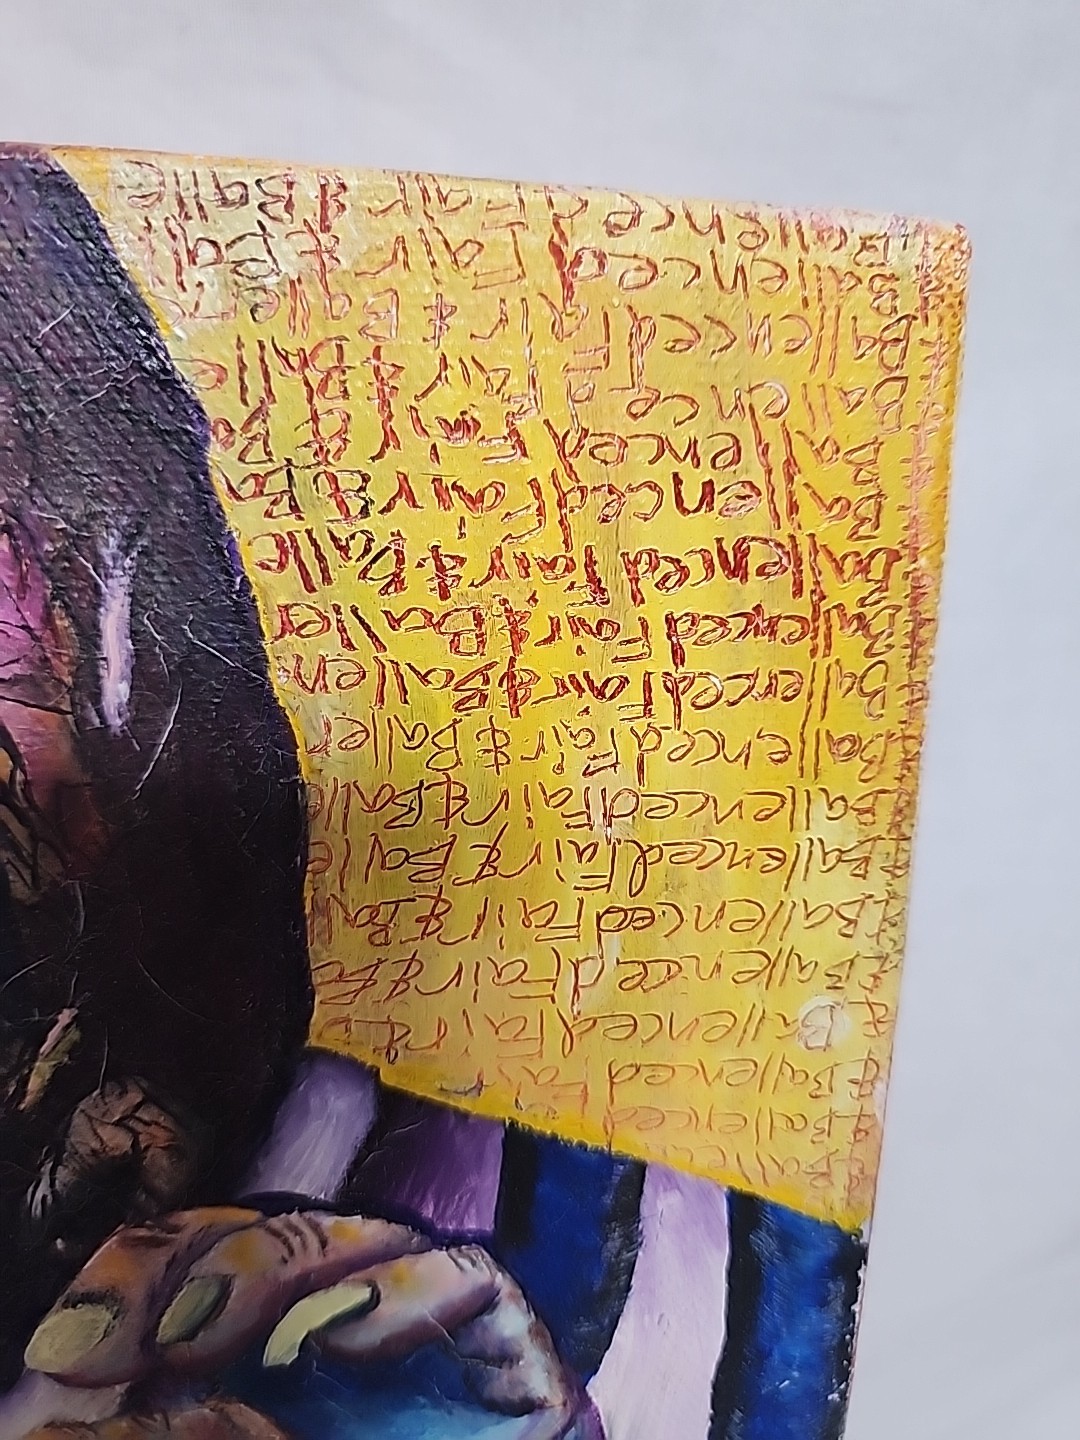 & Ballenced
& Ballenced Fair
& Ballenced Fair &
& Ballenced Fair & Ba
& Ballenced Fair & Ball
& Ballenced Fair & Balle
& Ballenced Fair & Balle
Ballenced Fair & Ballen
Ballenced Fair & Ballen
Ballenced Fair & Ballen
Ballenced Fair & Balle
Ballenced Fair & Ba
Ballenced Fair & Ba
Ballenced Fair & Balle
Ballenced Fair & Balle
Ballenced Fair & Balle
Ballenced Fair & Balle